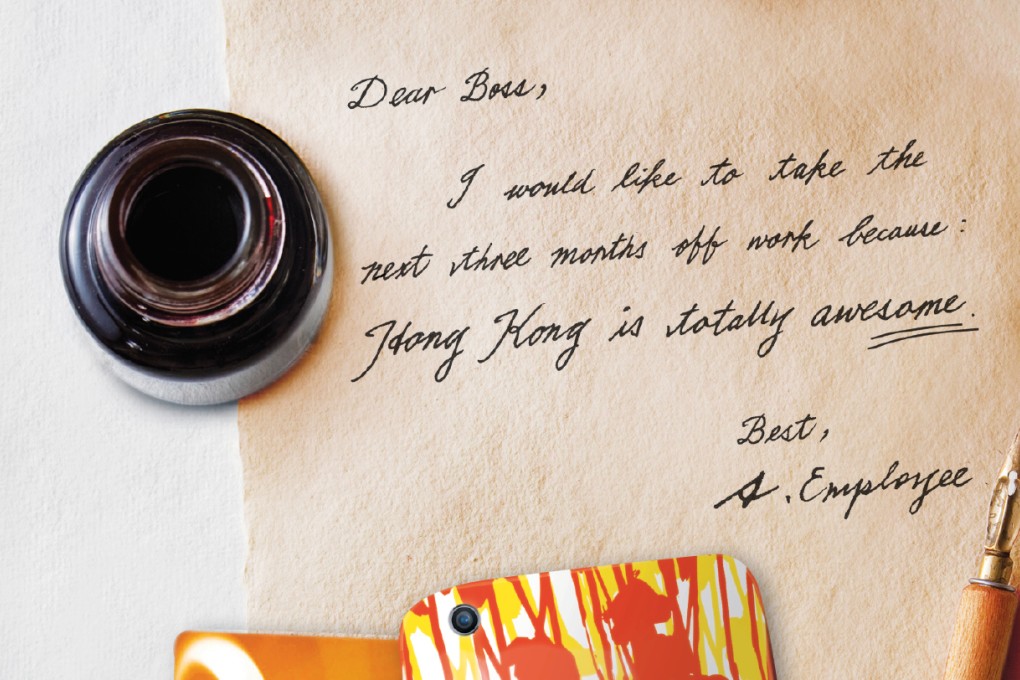 Dear Boss,
I would like to take the
next three months off work because:
Hong Kong is totally awesome.
Best,
A. Employee